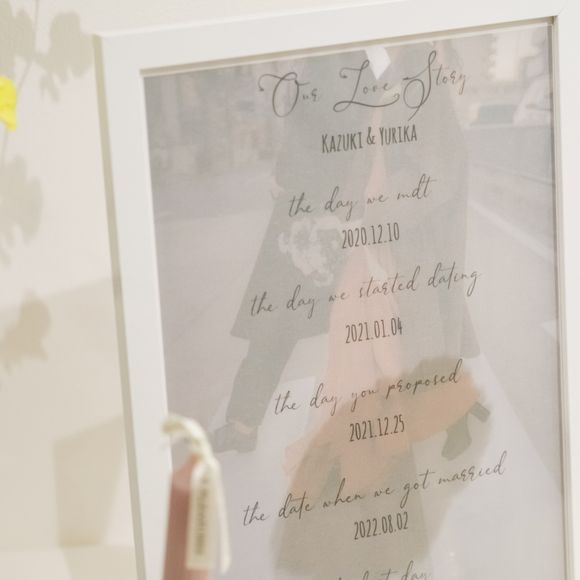 Our Love Story
KAZUKI & YURIKA
the day we mdt
2020.12.10
the day we started dating
2021.01.04
the day you proposed
2021.12.25
the date when we got married
2022.08.02
day